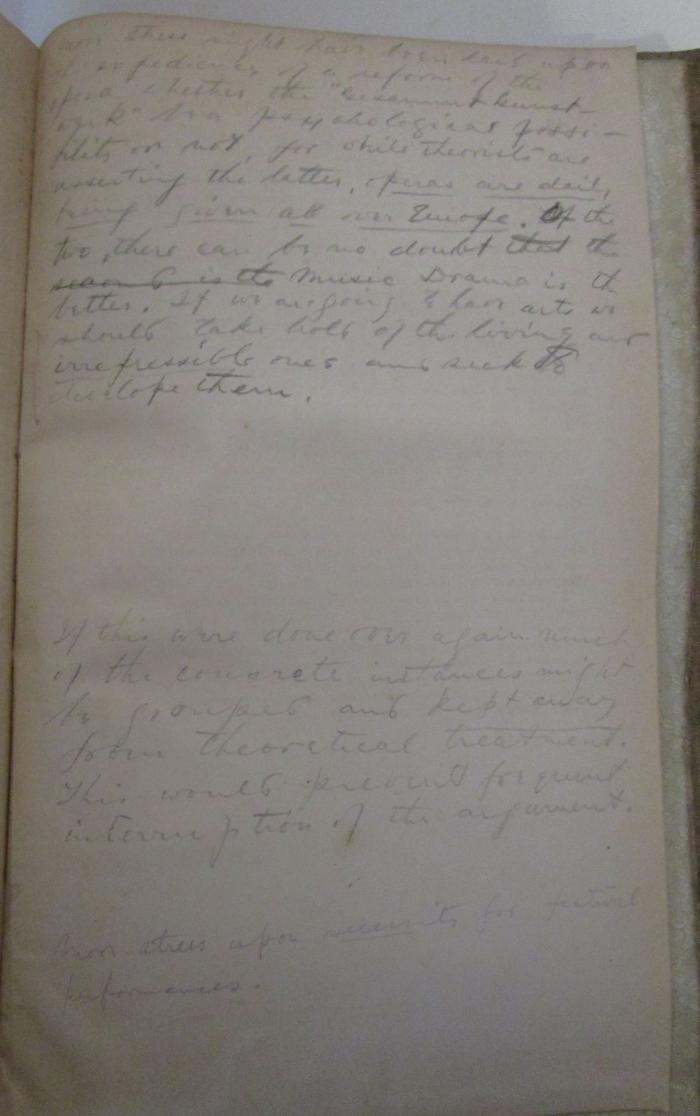 more stress might have been laid upon
the expediency of a reform of the
opera whether the "Gesammtkunst-
werk" be a psychological possi-
bility or not, for while theorists are
asserting the latter, operas are daily
being given all over Europe. Of the
two, there can be no doubt that the
second is the Music Drama is the
better. If we are going to have arts we
should take hold of the living and
irrepressible ones and seek to
develope them.
If this were done over again much
of the concrete instances might
be grouped and kept away
from theoretical treatment.
This would prevent frequent
interruption of the argument.
More stress upon necessity for festival
performances.